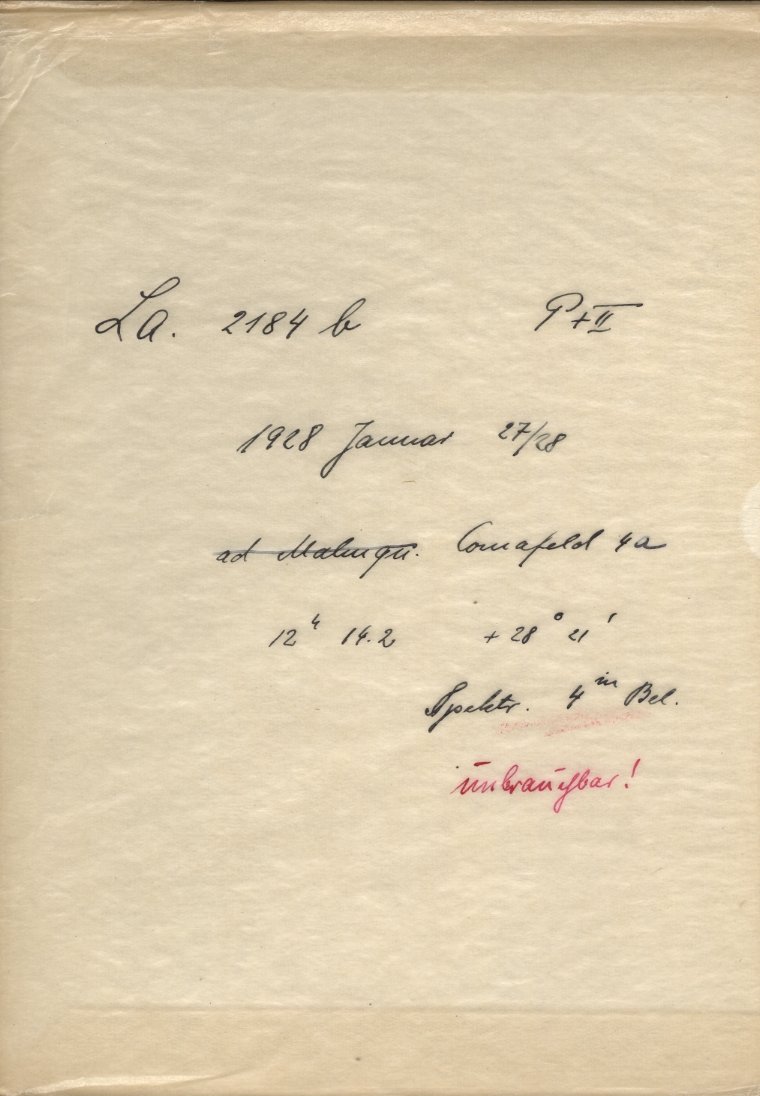 La. 2184 b P+II
1928 Januar 27/28
ad Malmqu. Comafeld 4a
12h 14.2 +28° 21'
Spektr. 4m Bel.
unbrauchbar!